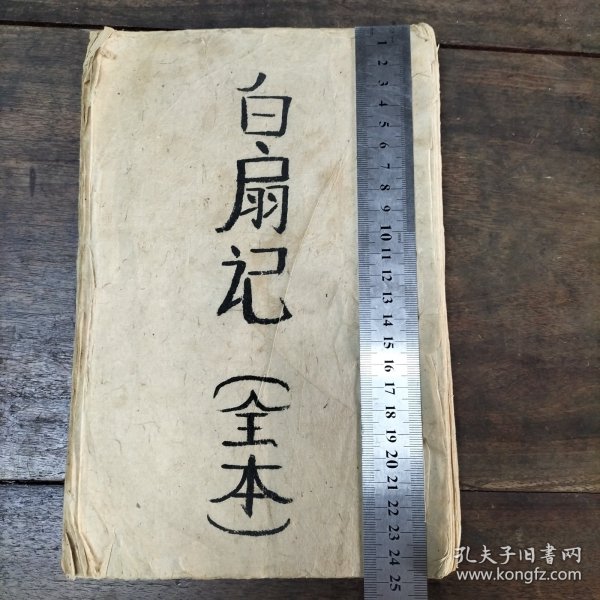 白扇记
（全本）
1
2
3
4
5
6
7
8
9
10
11
12
13
14
15
16
17
18
19
20
21
22
23
24
25
孔夫子旧書网
www.kongfz.com